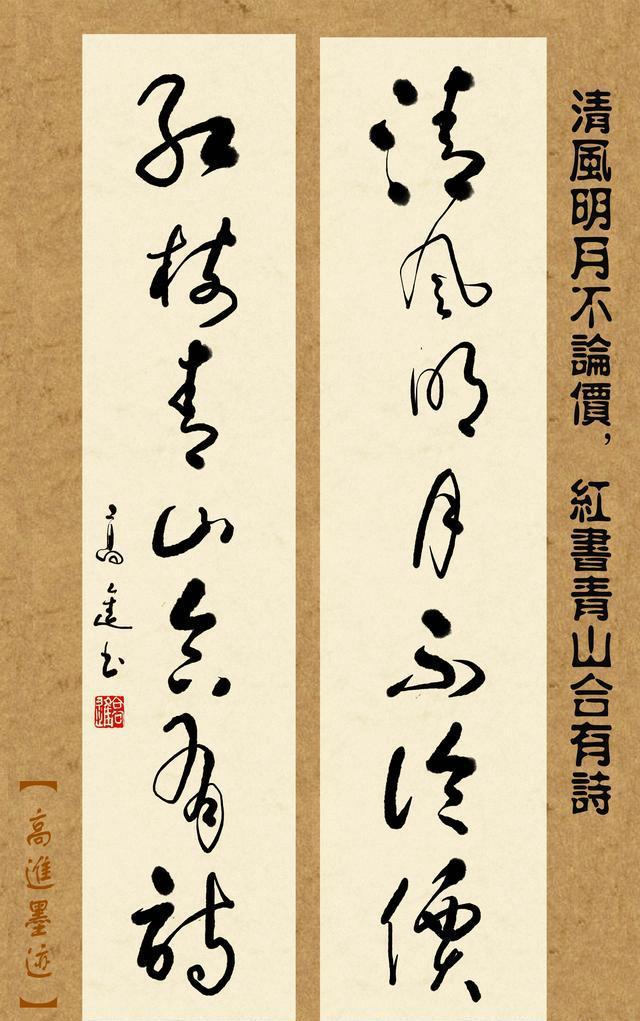 清風明月不論價，紅書青山合有詩
清風明月不論價
紅樹青山合有詩
高進书
【高進墨迹】